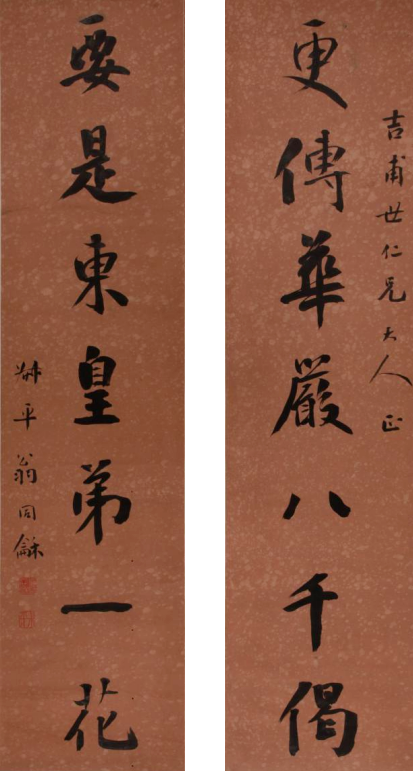 吉甫世仁兄大人正
更傳華嚴八千偈
要是東皇弟一花
叔平翁同龢